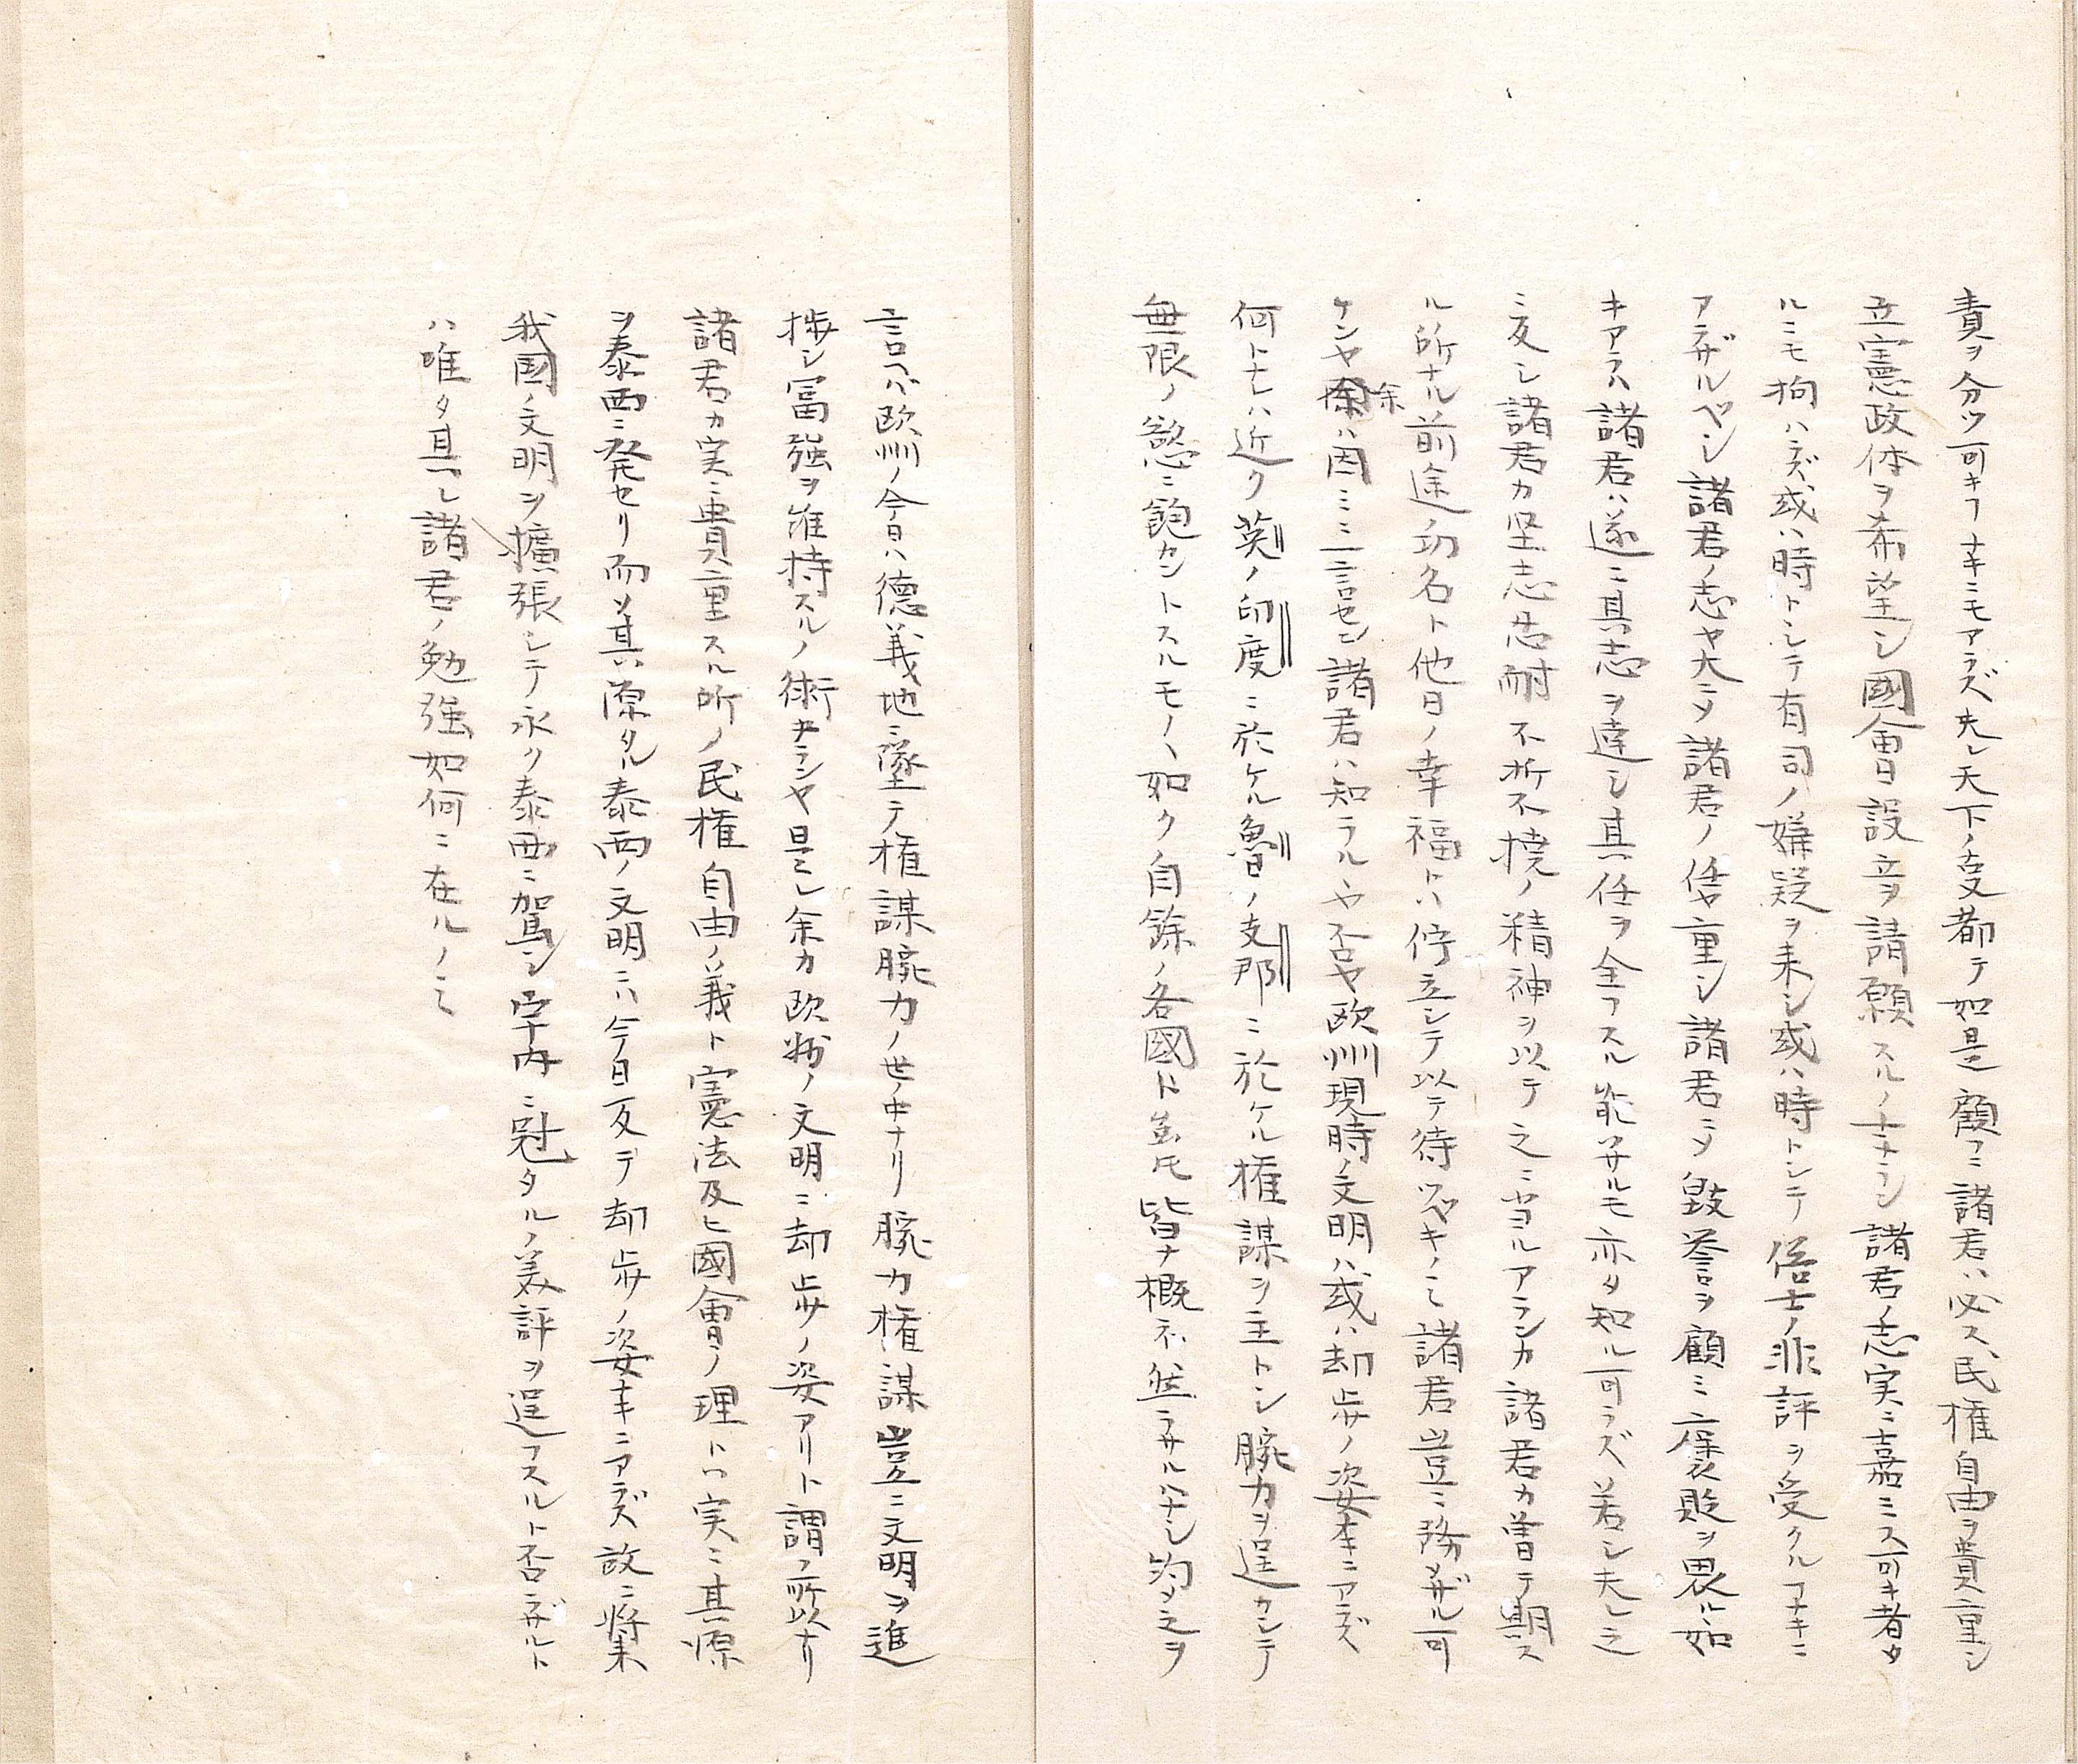 責ヲ分ツ可キフナキニモアラズ夫レ天下ノ支都テ如是顧フニ諸君ハ必ス民権自由ヲ貴重シ
立憲政体ヲ希望シ國會設立ヲ請願スルノ士ナラン諸君ノ志実ニ嘉ミス可キ者タ
ルニモ拘ハラズ或ハ時トシテ有司ノ嫌疑ヲ来シ或ハ時トシテ傖士ノ非評ヲ受クルフナキニ
アラザルベシ諸君ノ志ヤ大ニソ諸君ノ任ヤ重シ諸君ニソ毀誉ヲ顧ミ褒貶ヲ畏ル如
キアラハ諸君ハ遂ニ其志ヲ達シ其任ヲ全フスル能ザルモ亦タ知ル可ラズ若シ夫レ之
ニ反シ諸君カ坚志忍耐不折不撓ノ精神ヲ以テ之ニ当ルアランカ諸君カ曽テ期ス
ル所ナル前途ノ功名ト他日ノ幸福トハ佇立シテ以テ待ツベキノミ諸君豈ニ務メザル可
ケンヤ余ハ因ミニ一言セン諸君ハ知ラルヤ否ヤ欧洲現時ノ文明ハ或ハ却歩ノ姿ナキニアラズ
何トナレハ近ク英ノ印度ニ於ケル魯ノ支那ニ於ケル権謀ヲ主トシ腕力ヲ逞クシテ
無限ノ慾ニ飽カントスルモノヽ如ク自餘ノ各國ト虽𪜈皆ナ概ネ然ラサルハナシ約メ之ヲ
言ハヾ欧洲ノ今日ハ徳義地ニ墜テ権謀腕力ノ世ノ中ナリ腕力権謀豈ニ文明ヲ進
捗シ冨強ヲ維持スルノ術ナランヤ是レ余カ欧州ノ文明ニ却歩ノ姿アリト謂フ所以ナリ
諸君カ実ニ貴重スル所ノ民権自由ノ義ト憲法及ヒ國會ノ理トハ実ニ其源
ヲ泰西ニ発セリ而ソ其源タル泰西ノ文明ニハ今日反テ却歩ノ姿ナキニアラズ故ニ将来
我国ノ文明ヲ擴張シテ永ク泰西ニ駕シ宇内ニ冠タルノ美評ヲ逞フスルト否ラザルト
ハ唯タ其レ諸君ノ勉強如何ニ在ルノミ